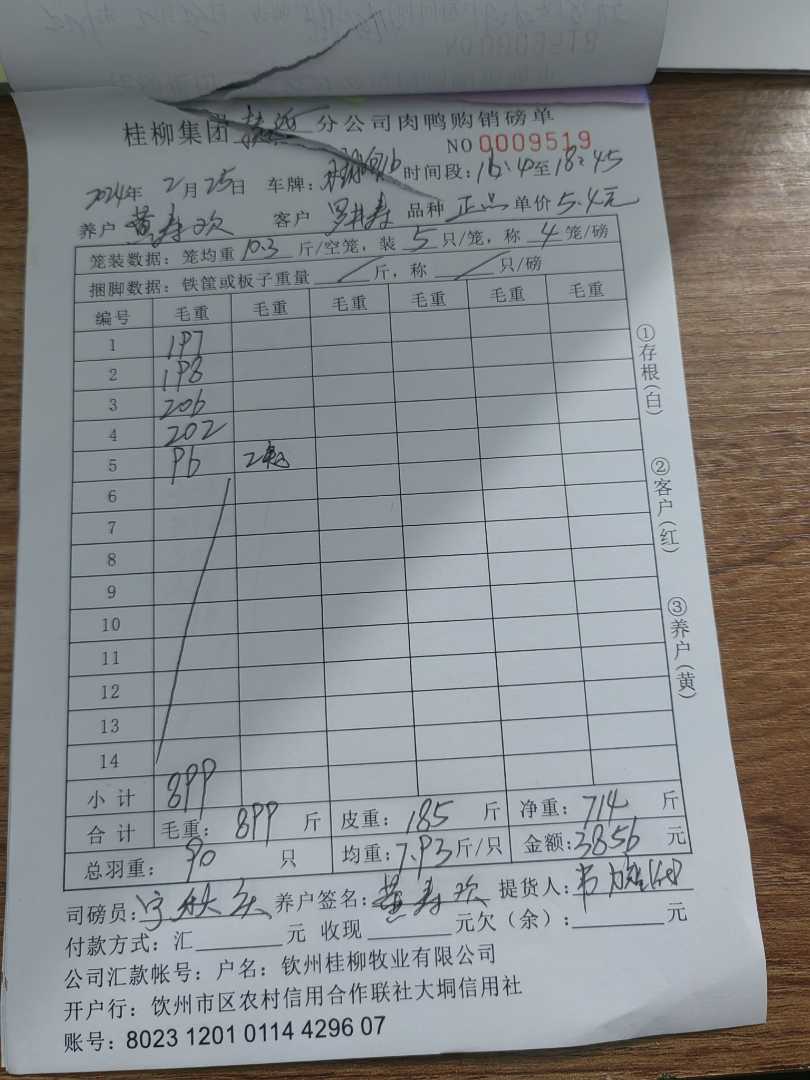 桂柳集团 分公司肉鸭购销磅单
NO 0009519
2024年 2月25日 车牌: 时间段:16:40至18:45
养户 黄寿欢 客户 品种 正品 单价 5.4元
笼装数据:笼均重 10.3 斤/空笼,装 5 只/笼,称 4 笼/磅
捆脚数据:铁筐或板子重量 / 斤,称 / 只/磅
编号 毛重 毛重 毛重 毛重 毛重 毛重
1 197
2 198
3 206
4 202
5 96 2笼
6
7
8
9
10
11
12
13
14
小计 899
合计 毛重: 899 斤 皮重: 185 斤 净重: 714 斤
总羽重: 90 只 均重: 7.93 斤/只 金额: 3856 元
司磅员: 养户签名: 黄寿欢 提货人:
付款方式:汇 元 收现 元欠(余): 元
公司汇款帐号:户名:钦州桂柳牧业有限公司
开户行:钦州市区农村信用合作联社大垌信用社
账号:8023 1201 0114 4296 07
①存根(白)
②客户(红)
③养户(黄)